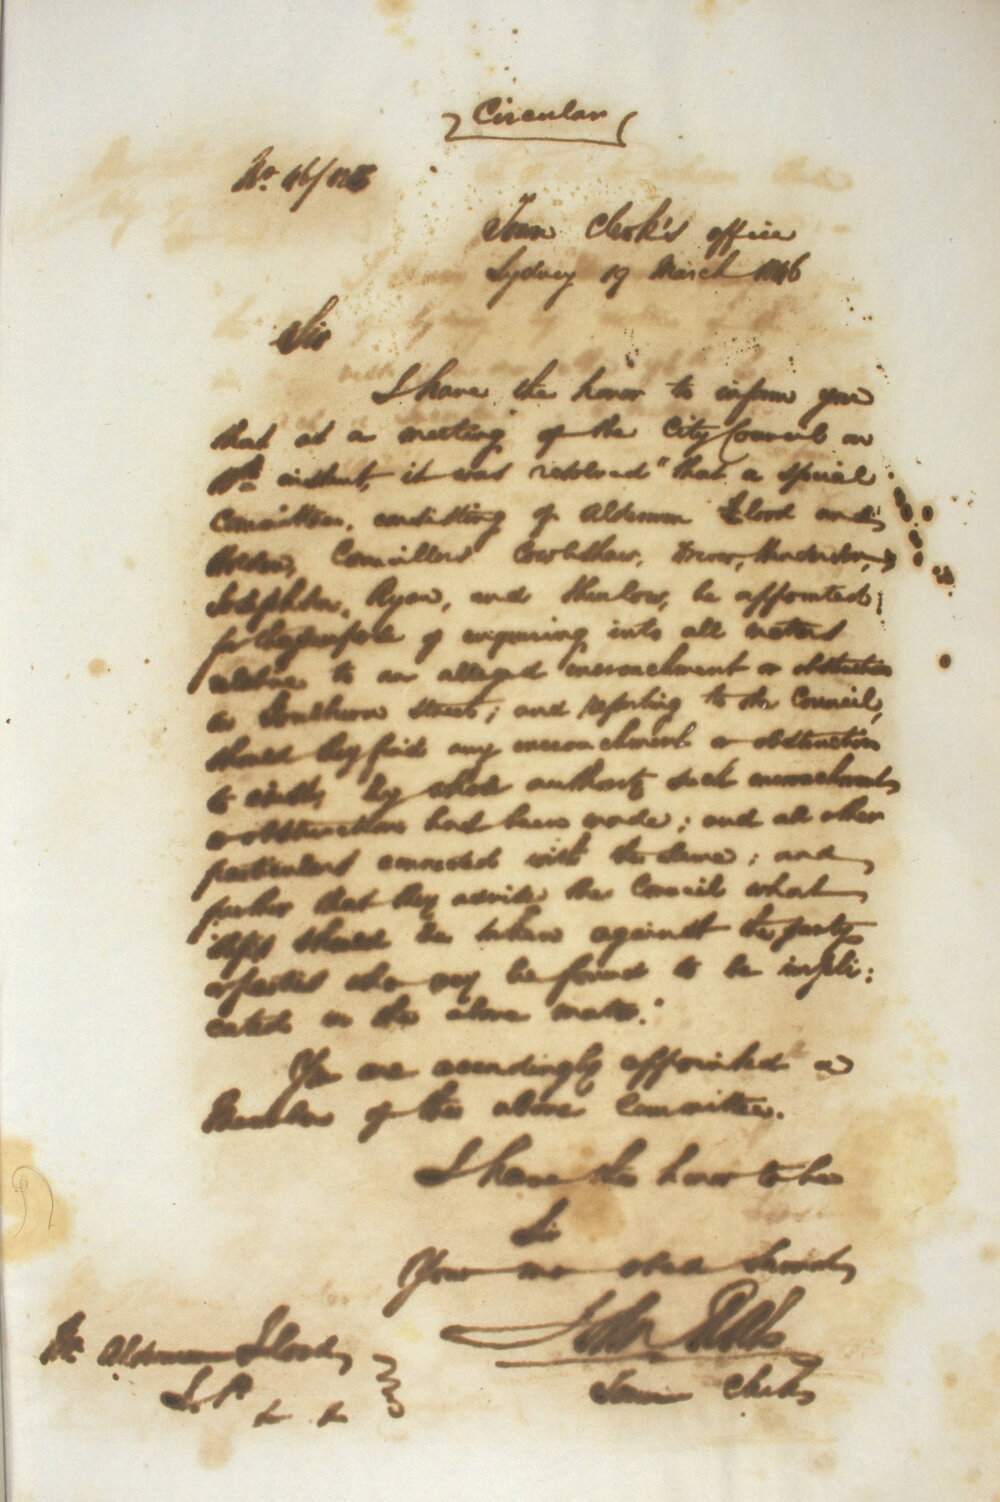 Circular
No. 46/
Town Clerk's office
Sydney 19 March 1846
Sir
I have the honor to inform you
that at a meeting of the City Council on
instant, it was resolved "that a special
Committee, consisting of Alderman Flood and
Holden, Councillors Cowlishaw, Driver, Henderson,
Josephson, Ryan, and Thurlow, be appointed
for the purpose of enquiring into all matters
relative to an alleged encroachment or obstruction
in Southern Street; and reporting to the Council,
should they find any encroachment or obstruction
to exist, by whose authority such encroachments
or obstructions had been made; and all other
particulars connected with the same; and
further that they advise the Council what
steps should be taken against the party
or parties who may be found to be impli:
cated in the above matter."
You are accordingly appointed a
Member of the above Committee.
I have the honor to be
Sir
Your mo obed Servant
John Rae
Town Clerk
Mr Alderman Flood,
J.P.